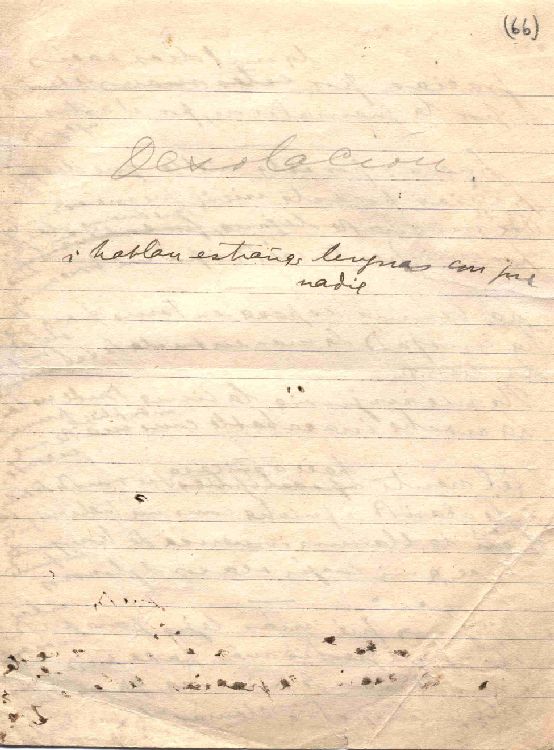 (66)
Desolación
i hablan estrañas lenguas con que
nadie